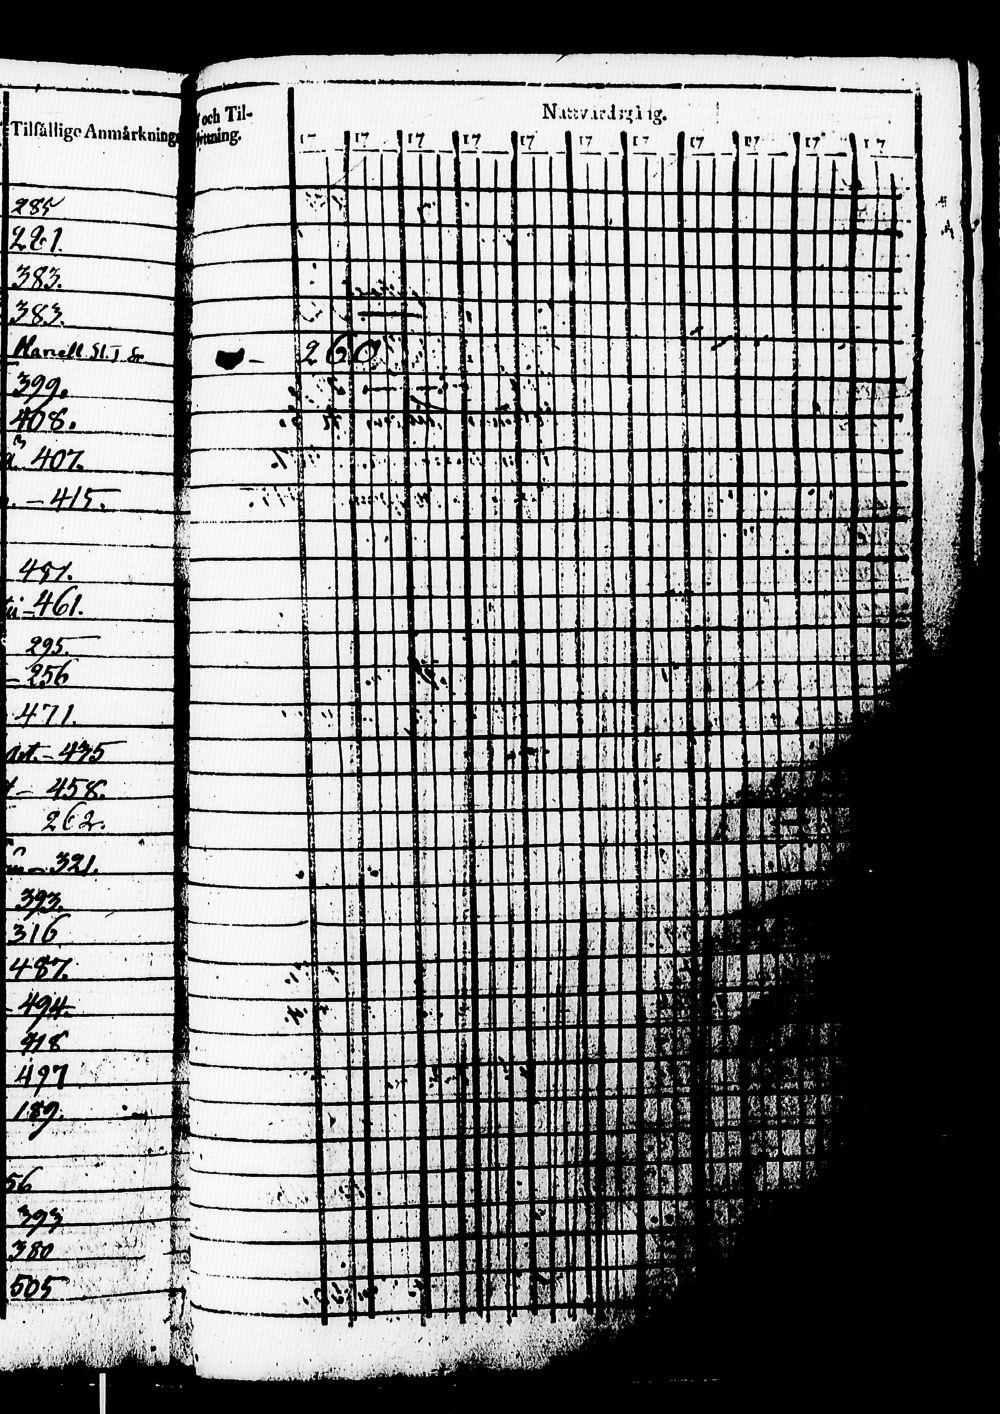 Tilfällige Anmärkning
och Til-
Nattvardsgång.
17 17 17 17 17 17 17 17 17 17 17
285
221.
383.
383.
260
399.
408.
407.
- 415.
487.
- 461.
295.
- 256
471.
- 435
- 458.
262.
- 321.
393.
316
487.
- 494.
418
497
189.
56
393
380
505